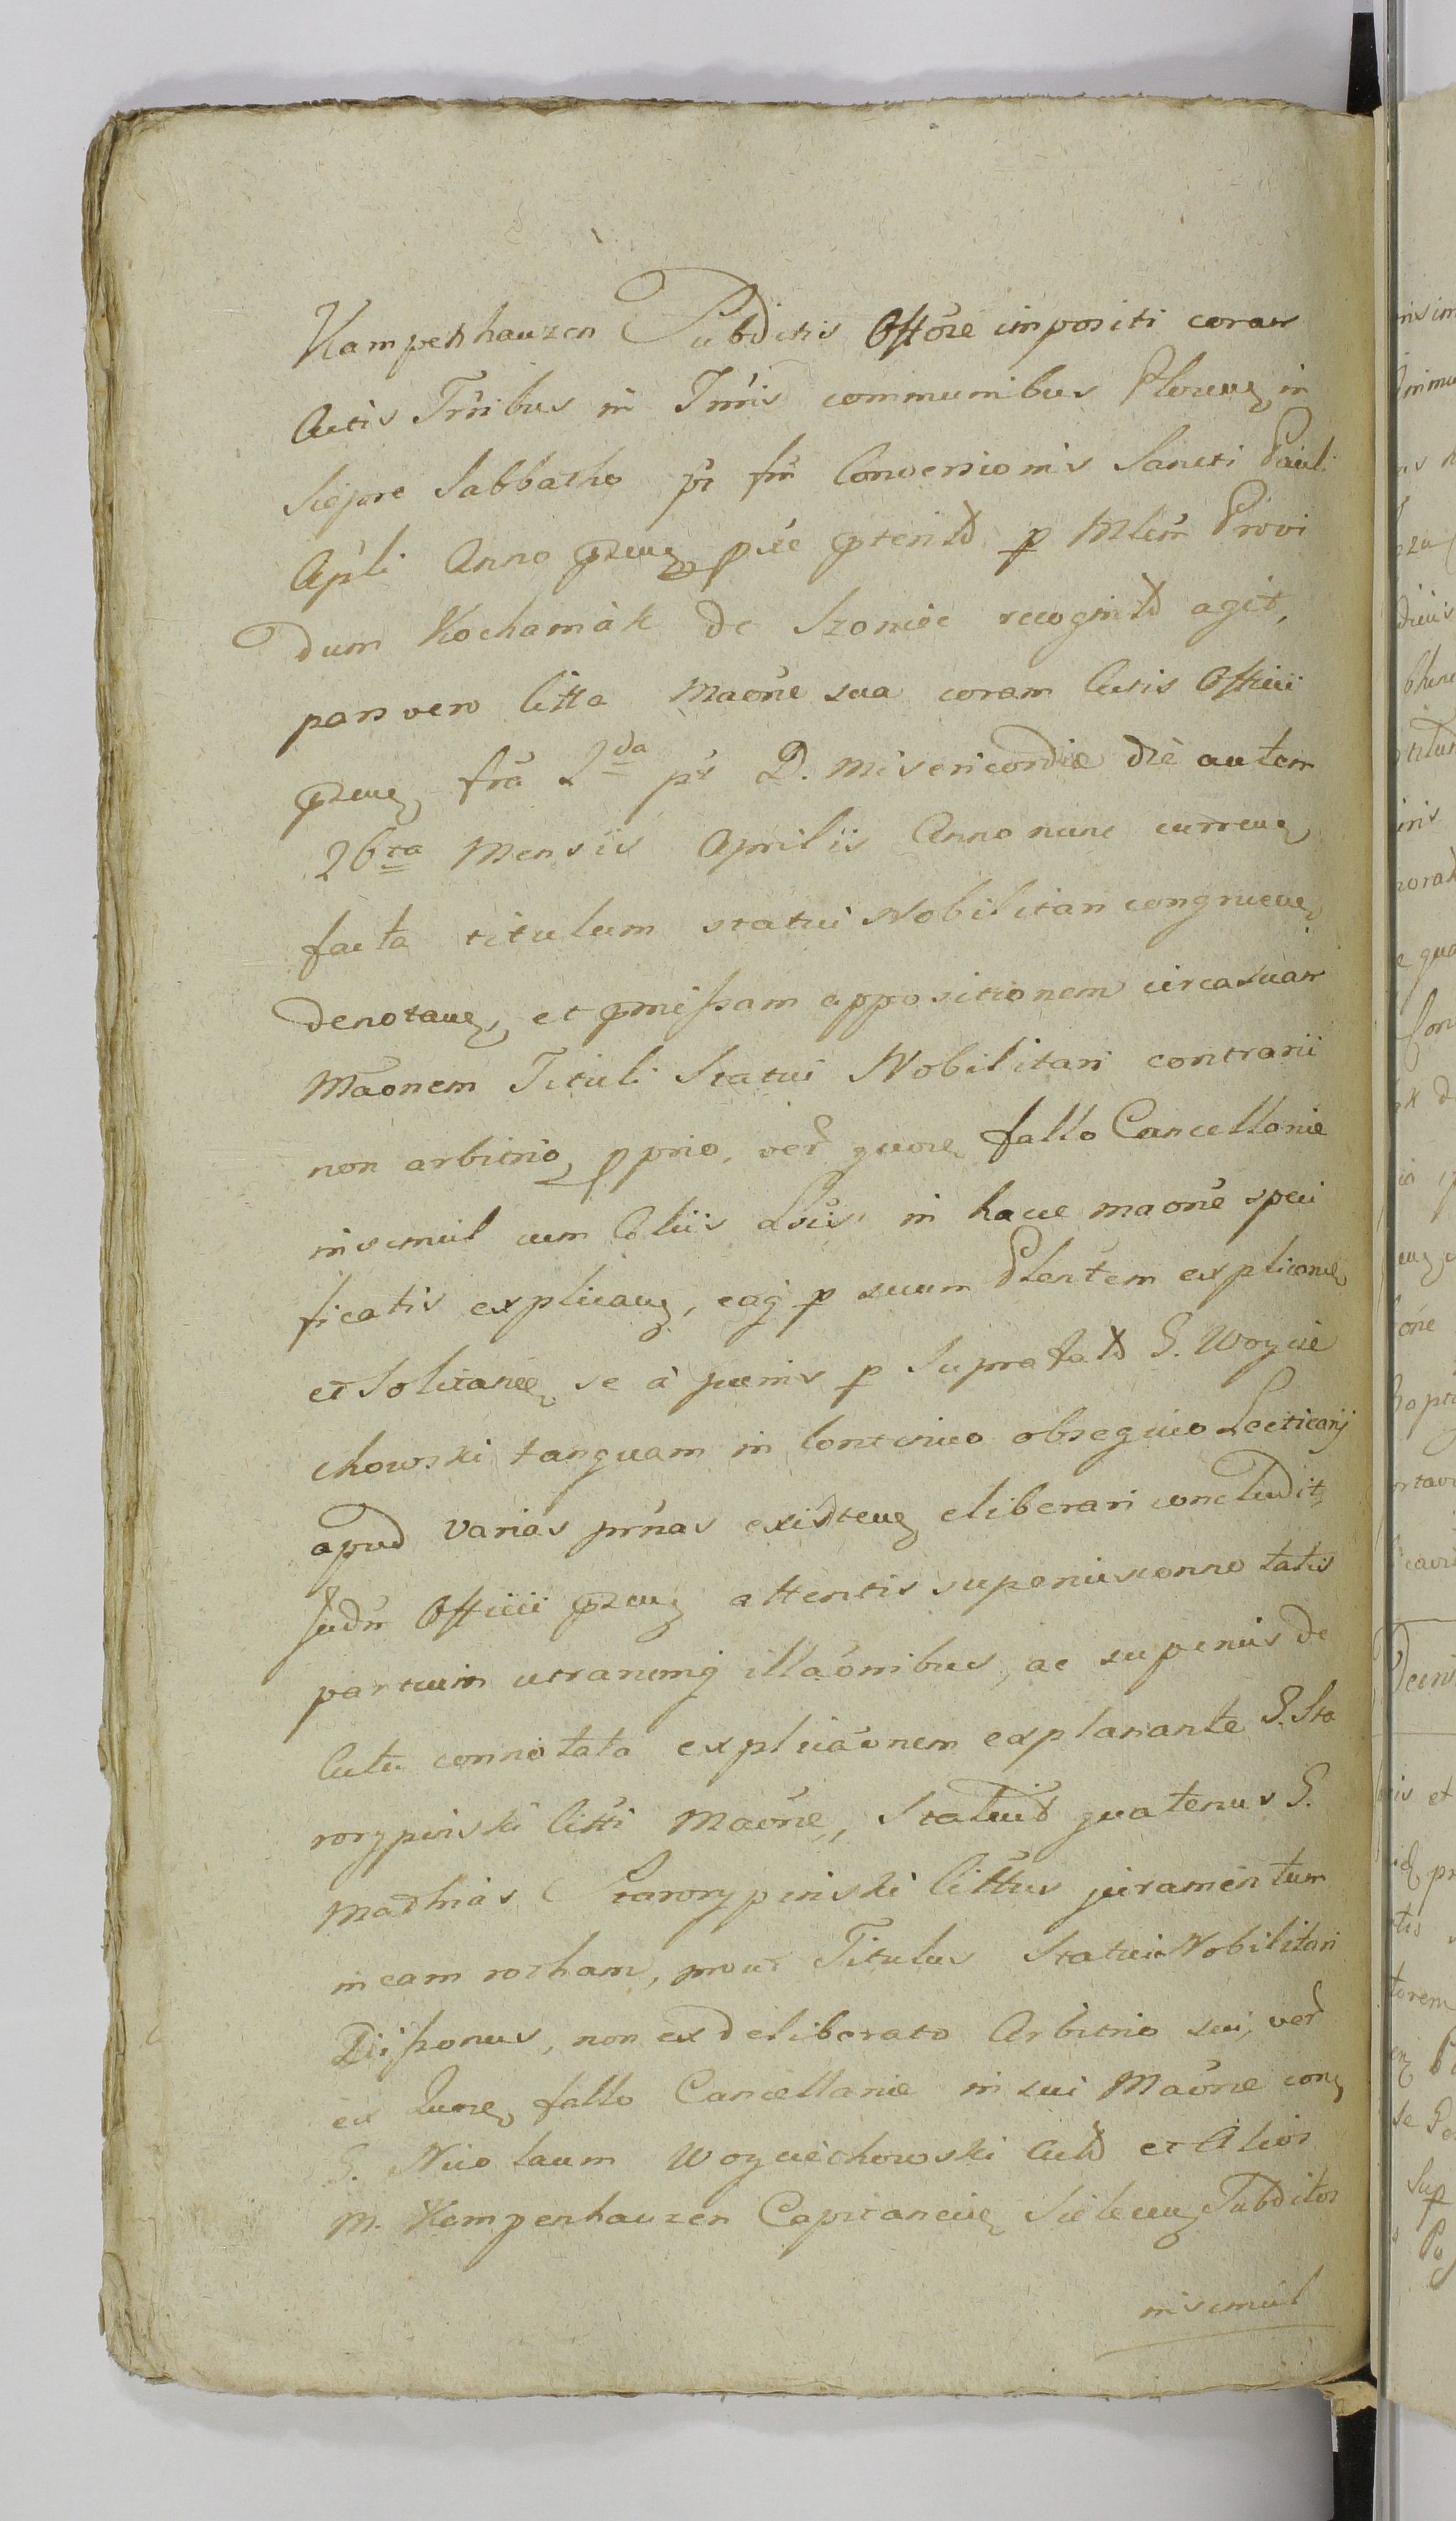 Kampenhauzen Subditis Offóre impositi coram
Actis Trribus in Trris communibus Plocen in
Siepre Sabbatho pt fm Conversionis Sancti Pauli
Apli Anno prnen pxe pterito p Mlem Provi
dum Kochamak de Szonice recognito agit,
pars vero Citta Maone sua coram Actis Officii
prnen fra 2da pt D. Misericordiæ die autem
26ta Mensis Aprilis Anno nunc curren
facta titulum statui Nobilitari congruen
denotan, et pmissam appositionem circa suam
Maonem Tituli Statui Nobilitari contrarii
non arbitrio pprio, ver quoren fallo Cancellariæ
insimul cum Aliis Loris in hacce maone speci
ficatis explican, eaq p suum Plentem explicone
et Solitane se à pænis p Suprafato G. Woycie
chowski tanquam in continuo obsequio Lecticarij
apud varias prnas existen eliberari concludit,
Judm Officii prnen attentis superius conno tatis
partium utrarumq illaonibus, ac superius de
Actu connotata expliciaonem explanante G. Sta
rorypinski Citti Maone, Statuit quatenus G.
Mathias Starorypinski Cittus juramentum
in eam rotham, prout Titulus Statui Nobilitari
Dissonus, non ex deliberato Arbitrio sui, ver
ex Quoren fallo Cancellariæ in sui Maone con
G. Nicolaum Woyciechowski Acto et Alios
M. Kempenhauzen Capitanei Sielecen Subditos
insimul